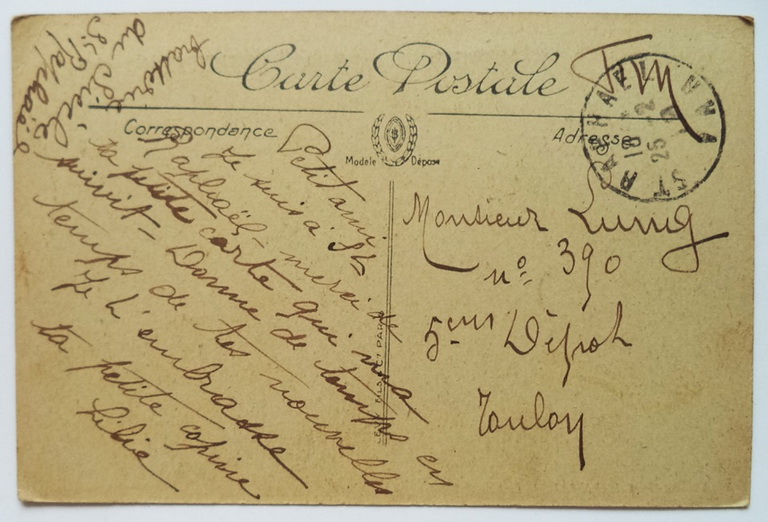 Carte Postale
Fm
Correspondance
Adresse
Modèle Déposé
ST RAPHAEL
18 - 2
25
Petit ami
Je suis à St
Raphaël, merci de
ta petite carte qui m'a
suivit - Donne de temps en
temps de tes nouvelles
Je t'embrasse
ta petite copine
Lilie
du Siècle
St Raphaël
Monsieur Lunig
n° 390
5ems Dépot
Toulon